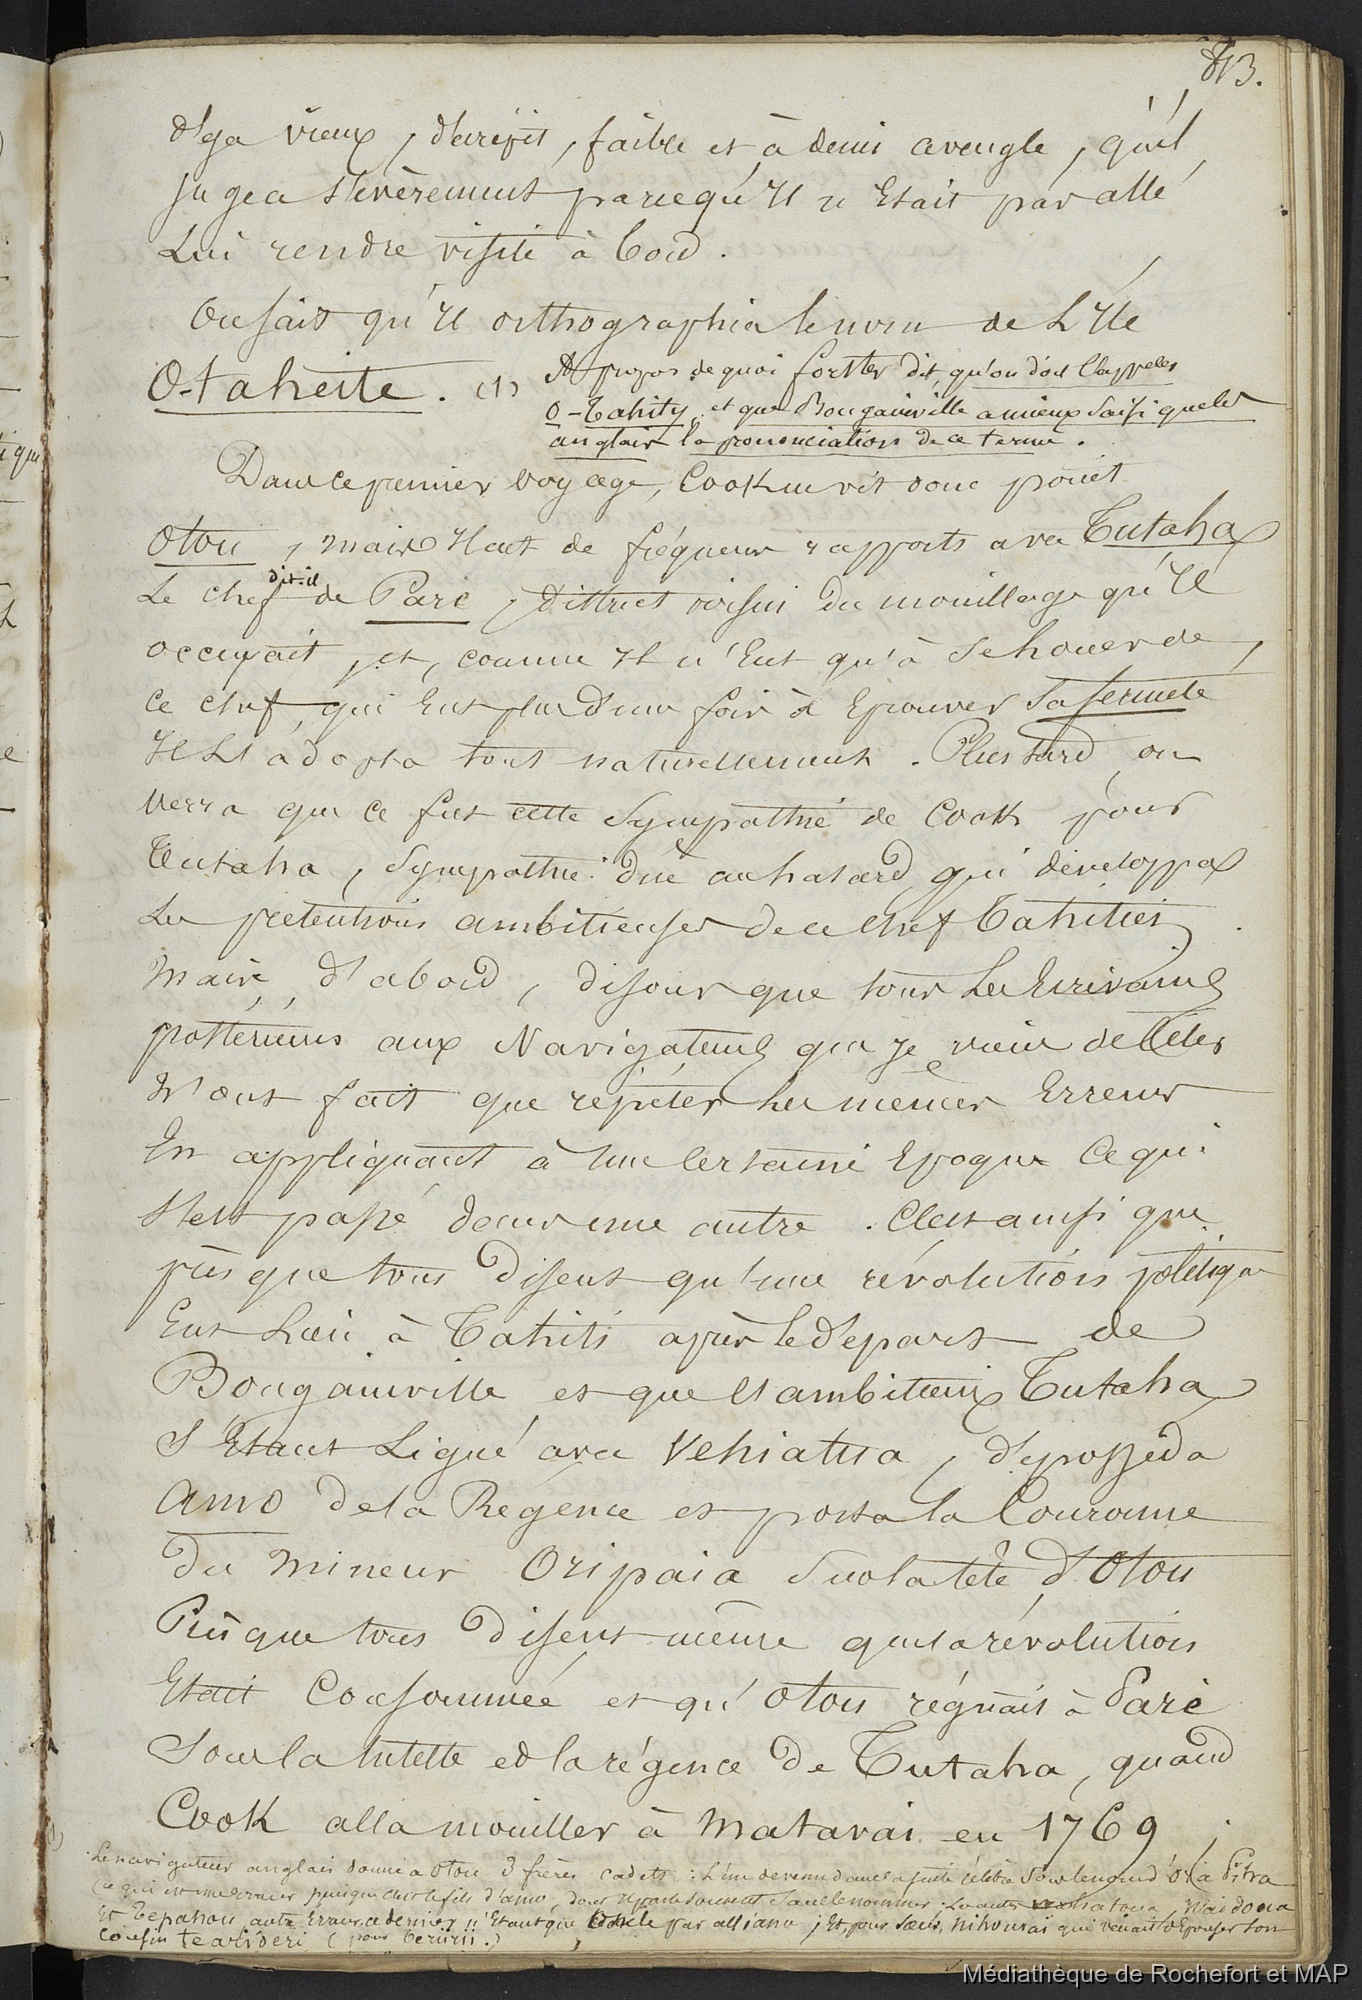 813.
déja vieux, décrépit, faible et à demi aveugle, qu'il
jugea sévèrement parcequ'Il n'Etait pas allé
Lui rendre visite à bord.
On sait qu'Il orthographia le nom de L'Ile
O-taheite. (1) A propos de quoi forster dit, qu'on doit l'appeler
O-Tahity, et que Bougainville a mieux saisi que les
anglais la prononciation de ce terme.
Dans ce premier voyage, Cook ne vit donc point
Otou, mais Il eut de fréquens rapports avec Tutaha
Le chef dit-il de Paré, district voisin du mouillage qu'Il
occupait, et, comme Il n'Eut qu'à se louer de
ce chef, qui Eut plus d'une fois à Eprouver sa fermeté
Il L'adopta tout naturellement. Plus tard on
verra que ce fut cette sympathie de Cook pour
Tutaha, sympathie due au hasard, qui développa
Les prétentions ambitieuses de ce chef Tahitien
Mais, d'abord, disons que tous Les Ecrivains
postérieurs aux Navigateurs que je viens de citer
N'ont fait que répéter Les mêmes Erreurs
En appliquant à une certaine Epoque ce qui
s'est passé dans une autre. C'est ainsi que
presque tous disent qu'une révolution politique
Eut Lieu à Tahiti après le départ de
Bougainville et que L'ambitieux Tutaha
s'Etant Ligué avec Vehiatua, déposséda
Amo de la Régence et posa la Couronne
du mineur Oripaia sur la tête d'Otou
Presque tous disent même que la révolution
Etait Consommée et qu'Otou régnait à Paré
Sous la tutelle et la régence de Tutaha, quand
Cook alla mouiller à Matavai en 1769;
Le navigateur anglais donne à Otou 3 frères cadets: L'un devenu dans la suite célèbre sous le nom d'Oria Pitra
ce qui est une erreur puisque c'est le fils d'amo, dont Il parle souvent sans le nommer; Les autres Vaïdoua
Et Tepahou, autre Erreur, ce dernier n'Etant que oncle par alliance; Et pour sœur, nihourai qui venait d'Epouser son
cousin Tearideri (pour Teriirii.)
Médiathèque de Rochefort et MAP